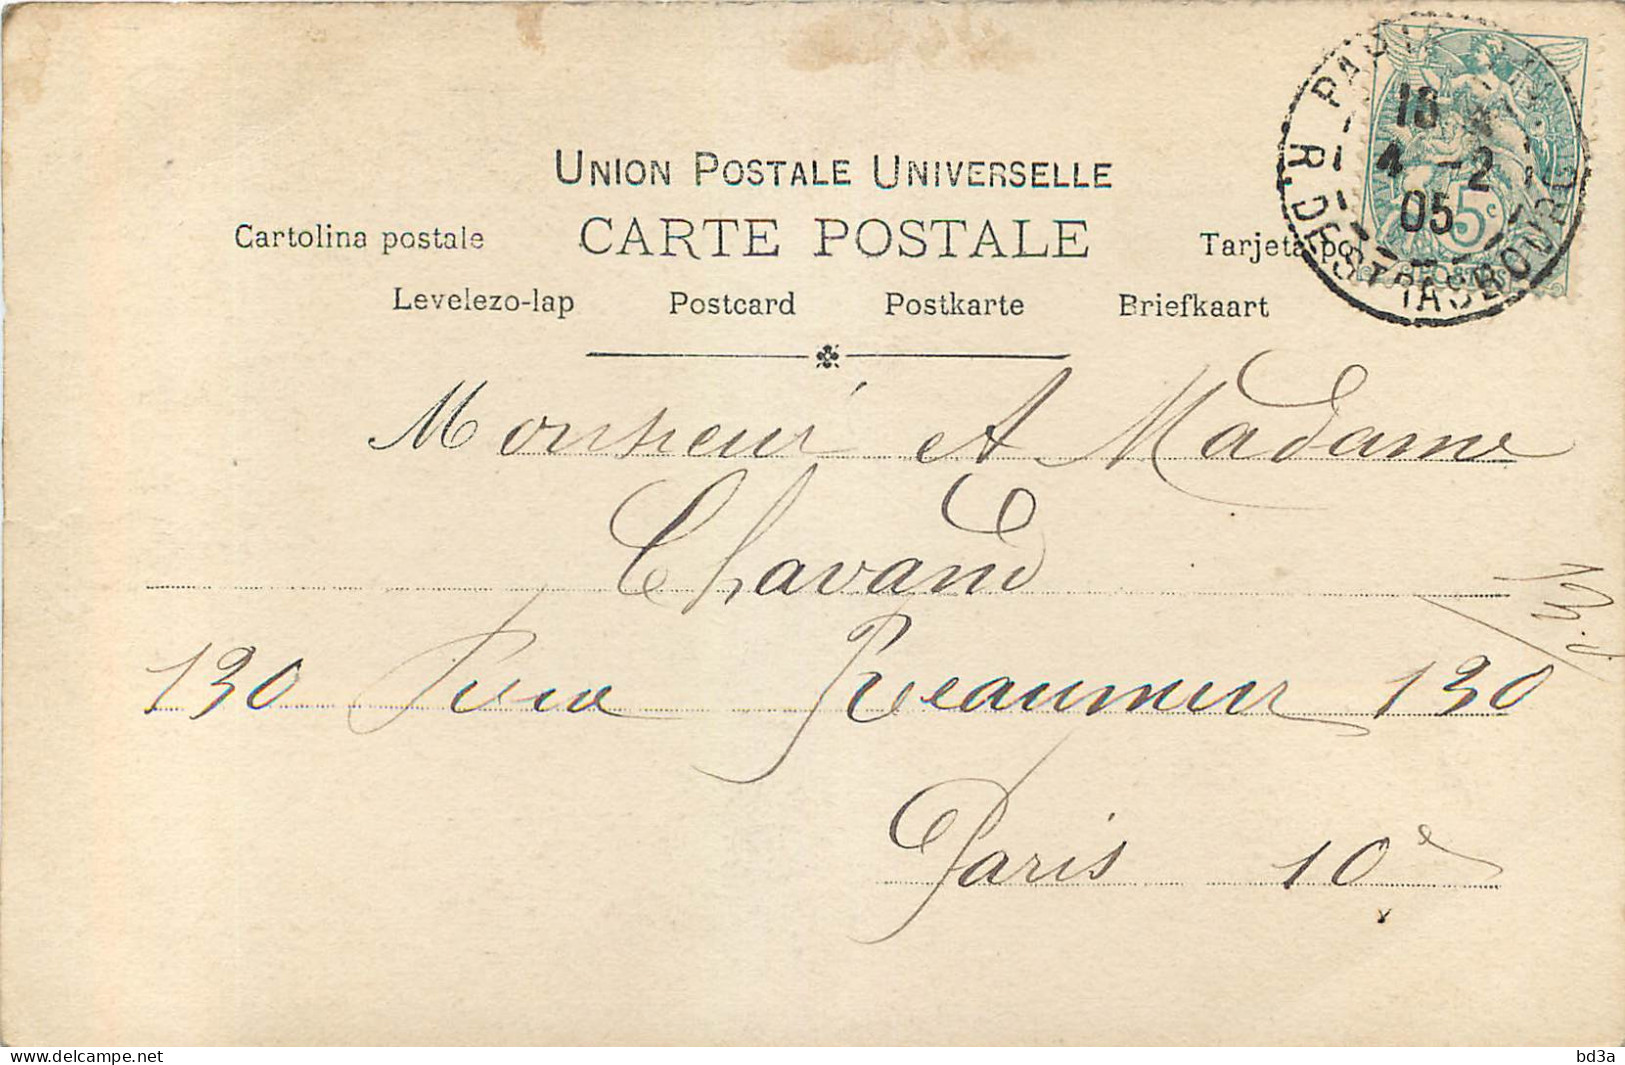 UNION POSTALE UNIVERSELLE
Cartolina postale
CARTE POSTALE
Tarjeta po
Levelezo-lap Postcard Postkarte Briefkaart
PARIS
R. DE STRASBOURG
18
4 -2
05
5c
POSTES
Monsieur et Madame
Chavand
130 Rue Reaumur 130
Paris 10e
www.delcampe.net
bd3a